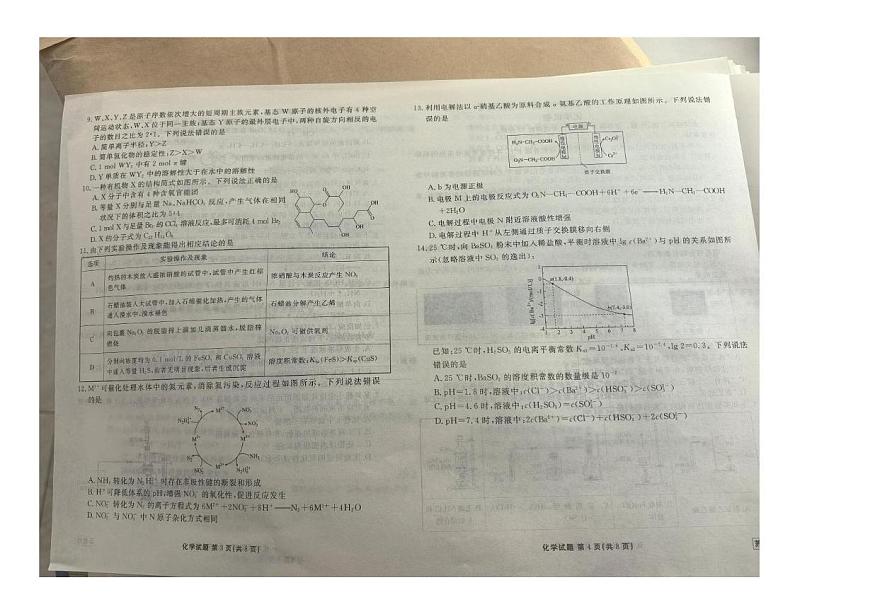 9. W、X、Y、Z 是原子序数依次增大的短周期主族元素,基态 W 原子的核外电子有 4 种空
间运动状态,W、X 位于同一主族;基态 Y 原子的最外层电子中,两种自旋方向相反的电
子的数目之比为 2∶1。下列说法错误的是
A. 简单离子半径:Y>Z
B. 简单氢化物的稳定性:Z>X>W
C. 1 mol WY₂ 中有 2 mol π 键
D. Y 单质在 WY₂ 中的溶解性大于在水中的溶解性
10. 一种有机物 X 的结构简式如图所示。下列说法正确的是
A. X 分子中含有 4 种含氧官能团
B. 等量 X 分别与足量 Na、NaHCO₃ 反应,产生气体在相同
状况下的体积之比为 5∶4
C. 1 mol X 与足量 Br₂ 的 CCl₄ 溶液反应,最多可消耗 4 mol Br₂
D. X 的分子式为
11. 由下列实验操作及现象能得出相应结论的是
选项 实验操作及现象 结论
A 灼热的木炭放入盛浓硝酸的试管中,试管中产生红棕
色气体 浓硝酸与木炭反应产生 NO₂
B 石蜡油装入大试管中,加入石棉催化加热,产生的气体
通入溴水中,溴水褪色 石蜡油分解产生乙烯
C 向包裹 Na₂O₂ 的脱脂棉上滴加几滴蒸馏水,脱脂棉
燃烧 Na₂O₂ 可做供氧剂
D 分别向浓度均为 0.1 mol/L 的 FeSO₄ 和 CuSO₄ 溶液
中通入等量 H₂S,前者无明显现象,后者生成沉淀 溶度积常数:Kₛₚ(FeS)>Kₛₚ(CuS)
12. M²⁺可催化处理水体中的氮元素,消除氮污染,反应过程如图所示。下列说法错误
的是
A. NH₃ 转化为 N₂H₄²⁺ 时存在非极性键的断裂和形成
B. H⁺可降低体系的 pH,增强 NO₃⁻ 的氧化性,促进反应发生
C. NO₂⁻ 转化为 N₂ 的离子方程式为 6M²⁺+2NO₂⁻+8H⁺══N₂+6M³⁺+4H₂O
D. NO₃⁻ 与 NO₂⁻ 中 N 原子杂化方式相同
化学试题 第 3 页(共 8 页)
13. 利用电解法以 α-硝基乙酸为原料合成 α-氨基乙酸的工作原理如图所示。下列说法错
误的是
电源
H₂N—CH₂—COOH
O₂N—CH₂—COOH
Cr₂O₇²⁻
Cr³⁺
质子交换膜
A. b 为电源正极
B. 电极 M 上的电极反应式为 O₂N—CH₂—COOH+6H⁺+6e⁻══H₂N—CH₂—COOH
+2H₂O
C. 电解过程中电极 N 附近溶液酸性增强
D. 电解过程中 H⁺从左侧通过质子交换膜移向右侧
14. 25 ℃时,向 BaSO₃ 粉末中加入稀盐酸,平衡时溶液中 lg c(Ba²⁺)与 pH 的关系如图所
示(忽略溶液中 SO₂ 的逸出):
pH
已知:25 ℃时,H₂SO₃ 的电离平衡常数 Kₐ₁=10⁻¹·⁸、Kₐ₂=10⁻⁷·⁴,lg 2=0.3。下列说法
错误的是
A. 25 ℃时,BaSO₃ 的溶度积常数的数量级是
B. pH=1.8 时,溶液中:c(Cl⁻)>c(Ba²⁺)>c(HSO₃⁻)>c(SO₃²⁻)
C. pH=4.6 时,溶液中:c(H₂SO₃)=c(SO₃²⁻)
D. pH=7.4 时,溶液中:2c(Ba²⁺)=c(Cl⁻)+c(HSO₃⁻)+2c(SO₃²⁻)
化学试题 第 4 页(共 8 页)